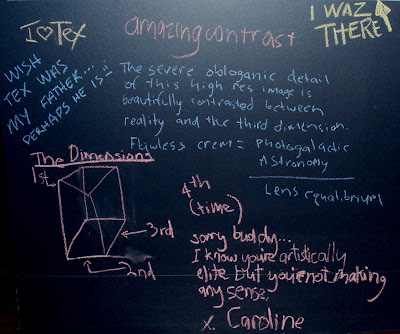 I ♡ Tex
amazing contrast
I WAZ
THERE
WISH
TEX WAS
MY FATHER...
PERHAPS HE IS
The severe obloganic detail
of this high res image is
beautifully contrasted between
reality and the third dimension.
Flawless crem = Photogalactic
Astronomy
Lens equalibrium
The Dimensions
1st
3rd
2nd
4th
(time)
sorry buddy...
I know you're artistically
elite but you're not making
any sense.
x. Caroline